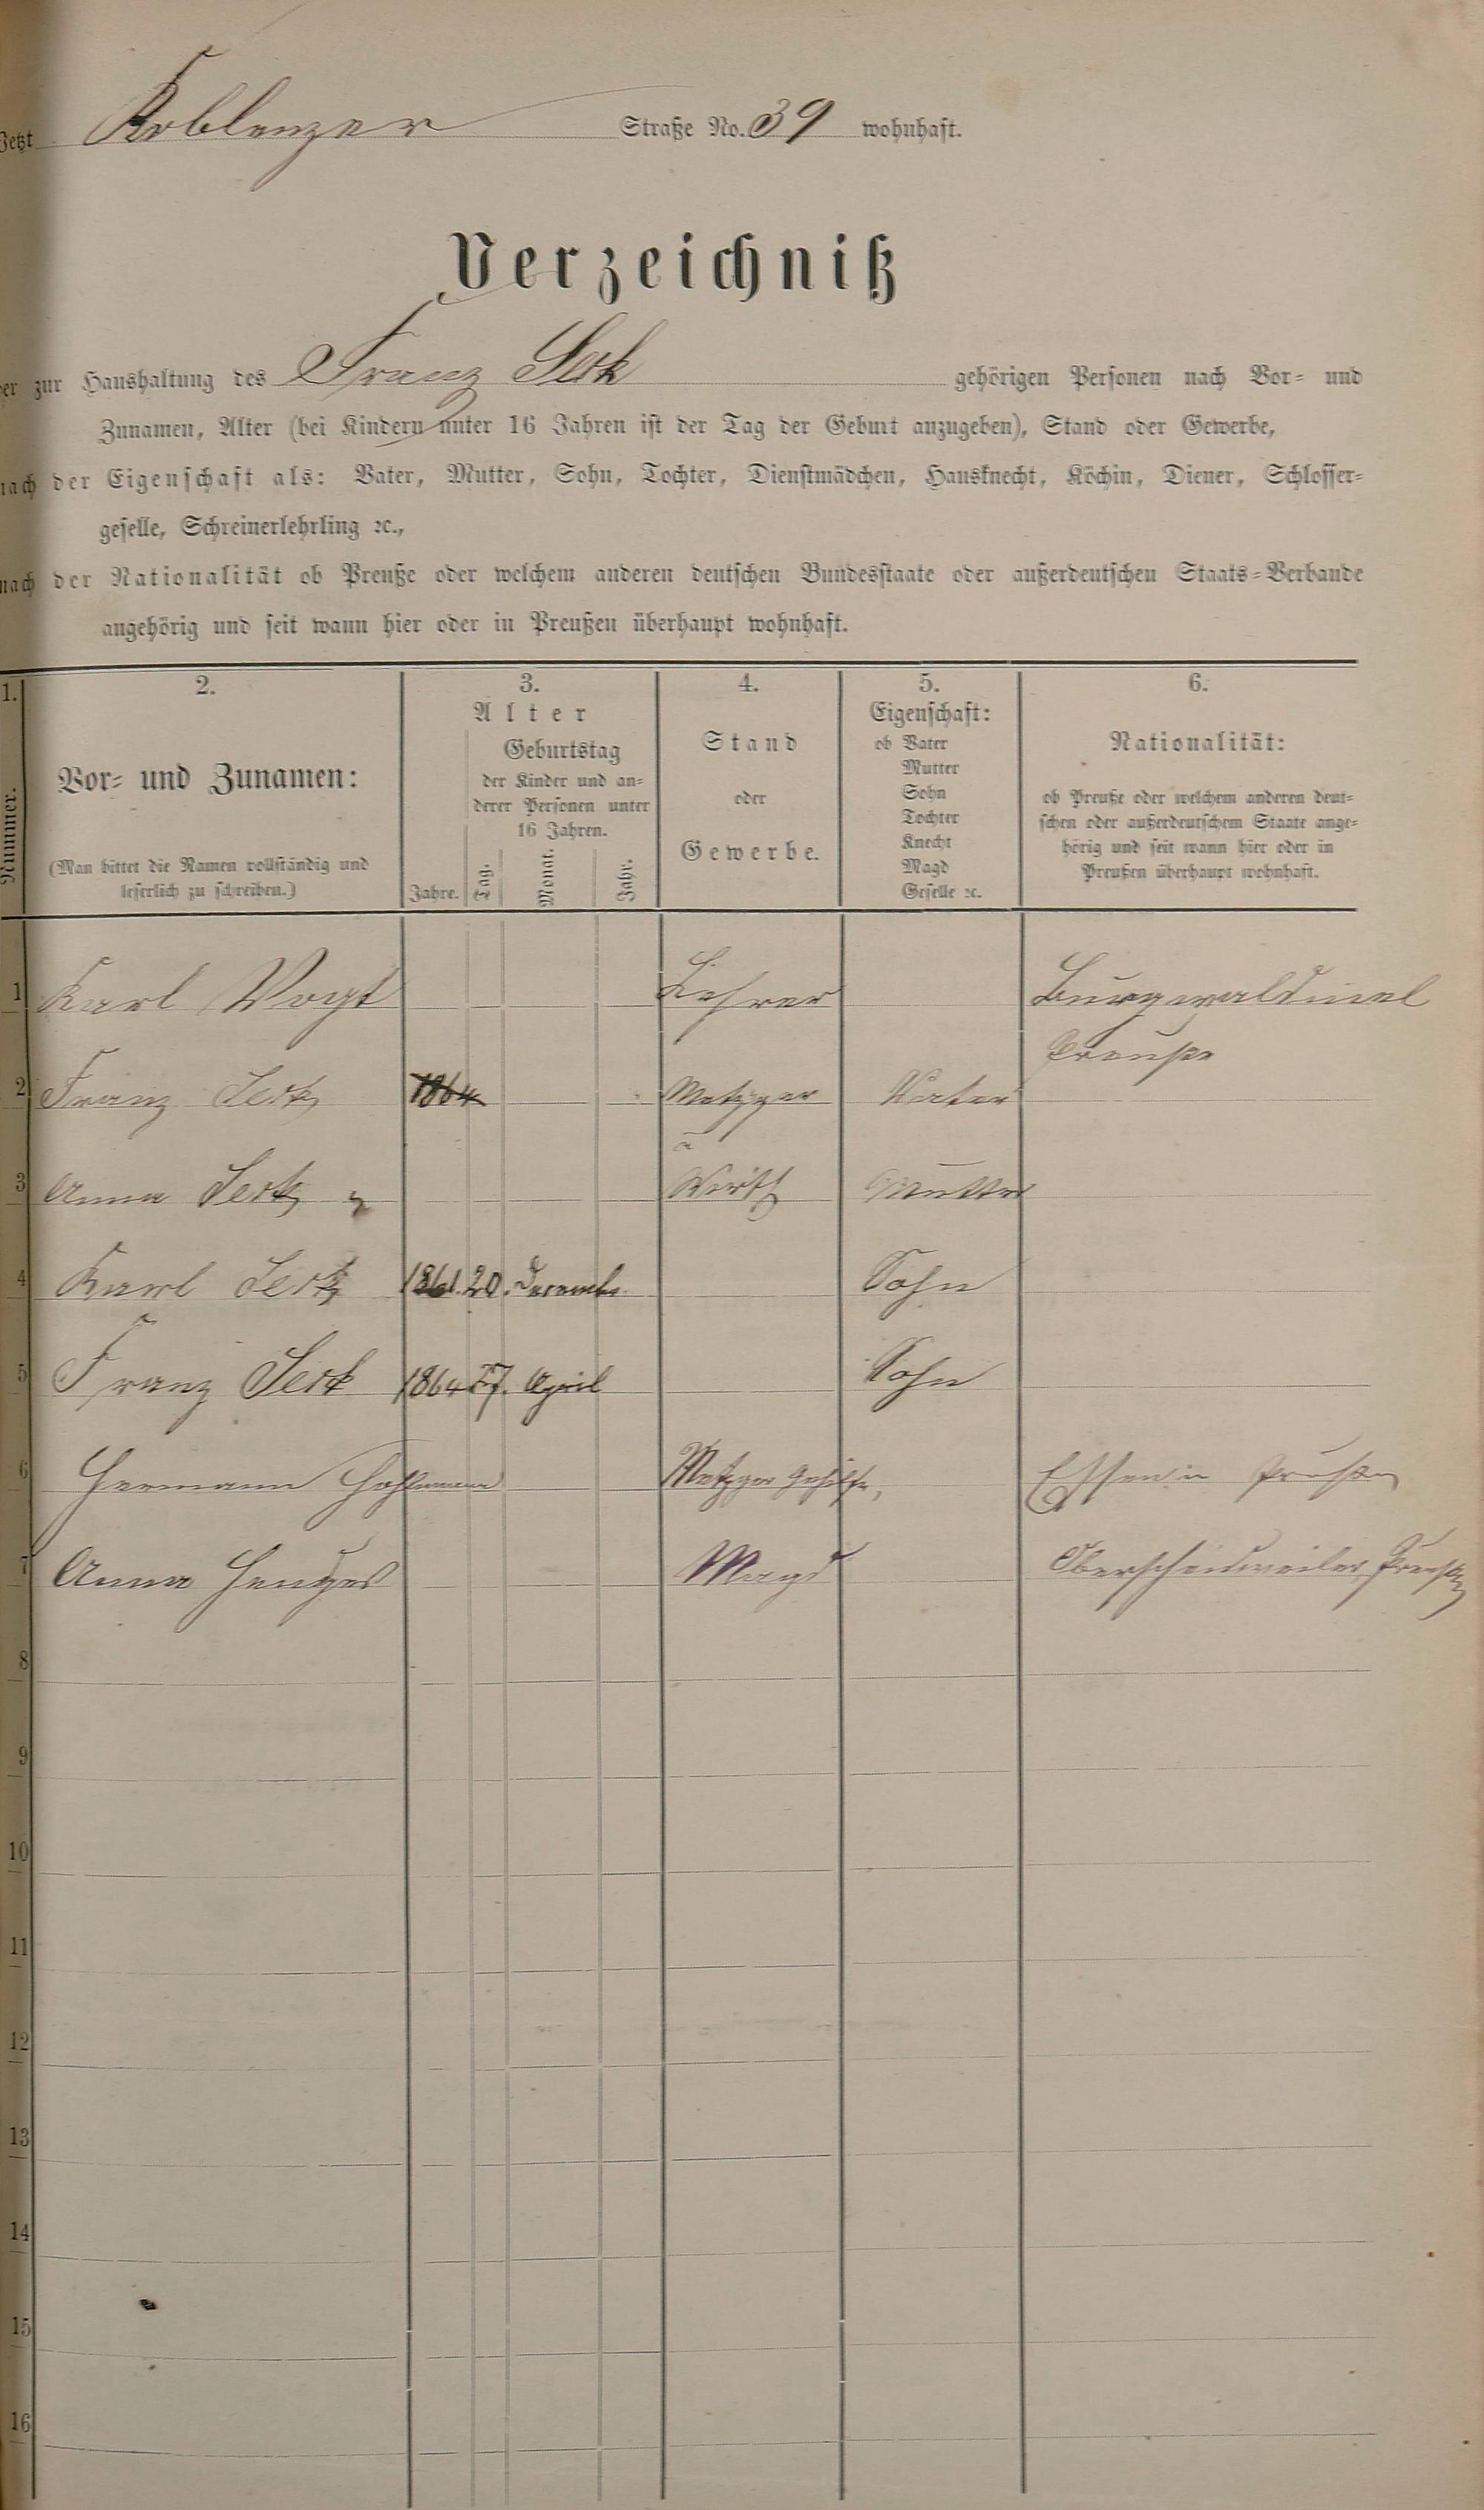 Jetzt Koblenzer Straße No. 39 wohnhaft.
Verzeichniß
der zur Haushaltung des Franz Serk gehörigen Personen nach Vor- und
Zunamen, Alter (bei Kindern unter 16 Jahren ist der Tag der Geburt anzugeben), Stand oder Gewerbe,
nach der Eigenschaft als: Vater, Mutter, Sohn, Tochter, Dienstmädchen, Hausknecht, Köchin, Diener, Schlosser-
geselle, Schreinerlehrling ꝛc.,
nach der Nationalität ob Preuße oder welchem anderen deutschen Bundesstaate oder außerdeutschen Staats-Verbande
angehörig und seit wann hier oder in Preußen überhaupt wohnhaft.
1. 2. 3. 4. 5. 6.
Nummer.
Vor- und Zunamen:
(Man bittet die Namen vollständig und
leserlich zu schreiben.)
Alter
Geburtstag
der Kinder und an-
derer Personen unter
16 Jahren.
Jahre. Tag. Monat. Jahr.
Stand
oder
Gewerbe.
Eigenschaft:
ob Vater
Mutter
Sohn
Tochter
Knecht
Magd
Geselle ꝛc.
Nationalität:
ob Preuße oder welchem anderen deut-
schen oder außerdeutschem Staate ange-
hörig und seit wann hier oder in
Preußen überhaupt wohnhaft.
1 Karl Vogt Lehrer Burgwaldniel
Preuße
2 Franz Serk 1864 Metzger Vater
u
3 Anna Serk Wirth Mutter
4 Karl Serk 1861. 20. Decemb. Sohn
5 Franz Serk 1864 27. April Sohn
6 Hermann Hohlmann Metzger Gehilfe, Essen in Preußen
7 Anna Hentges Magd Oberscheidweiler Preußen
8
9
10
11
12
13
14
15
16